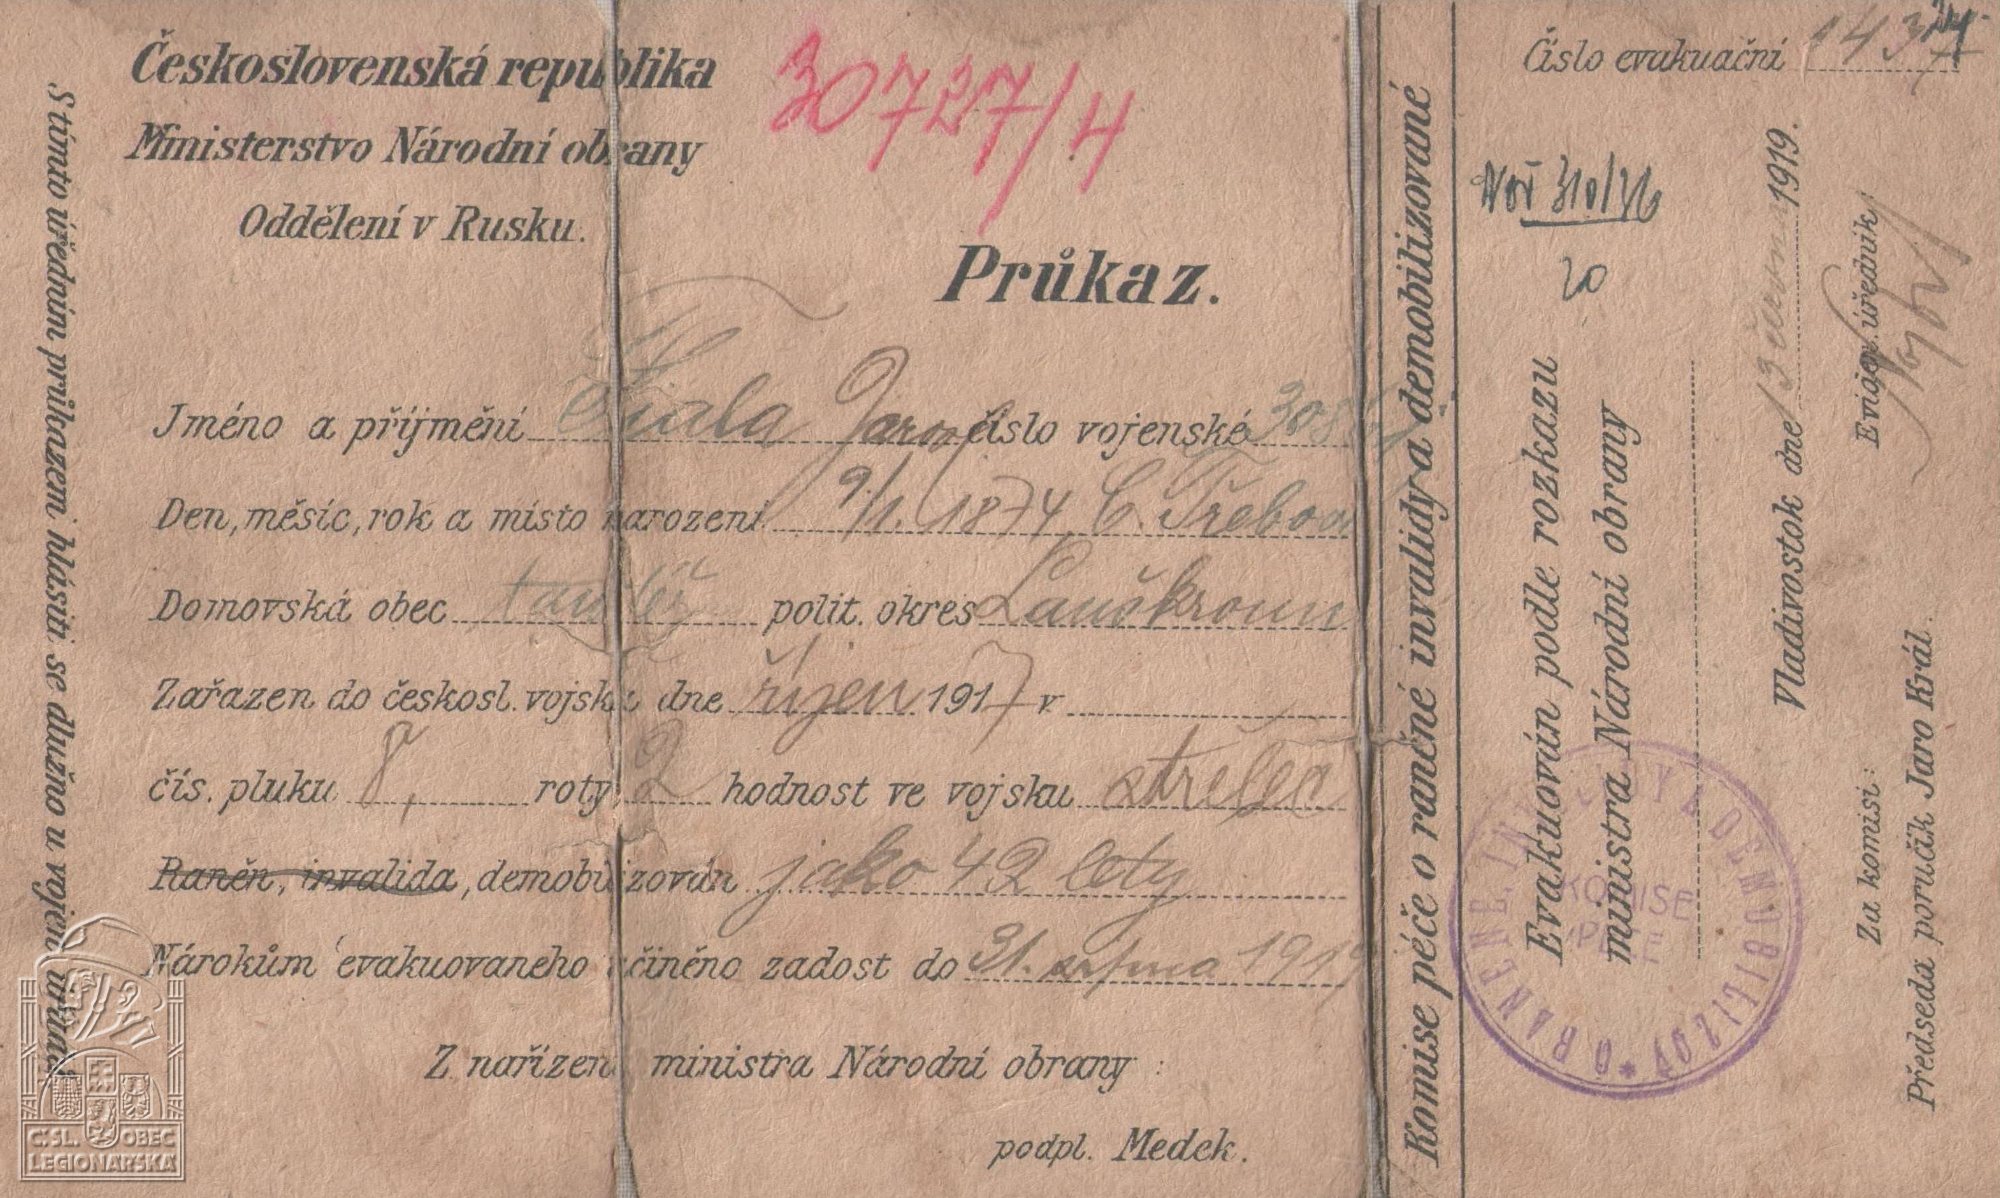 Československá republika
Ministerstvo Národní obrany
Oddělení v Rusku.
30727/4
Průkaz.
Jméno a příjmění Fiala Jaros číslo vojenské 308
Den, měsíc, rok a místo narození 9/1. 1874 Č. Třebova
Domovská obec tamtéž polit. okres Lanškroun
Zařazen do českosl. vojska dne říjen 1917 v
čís. pluku 8, roty 2 hodnost ve vojsku střelec
Raněn, invalida, demobilizován jako 42 letý
Nárokům evakuovaneho učiněno zadost do 31. srpna 1919
Z nařízení ministra Národní obrany:
podpl. Medek.
S tímto úředním průkazem hlásiti se dlužno u vojen. úřadu
Komise péče o raněné invalidy a demobilizované
Číslo evakuační
310/36
20
Evakuován podle rozkazu
ministra Národní obrany
Vladivostok dne 13 1919.
Evidenč. úředník
Za komisi:
Předseda poručík Jaro Král.
KOMISE
PÉČE
O RANĚNÉ, INVALIDY A DEMOBILIZOV.
Č.SL. OBEC
LEGIONÁŘSKÁ